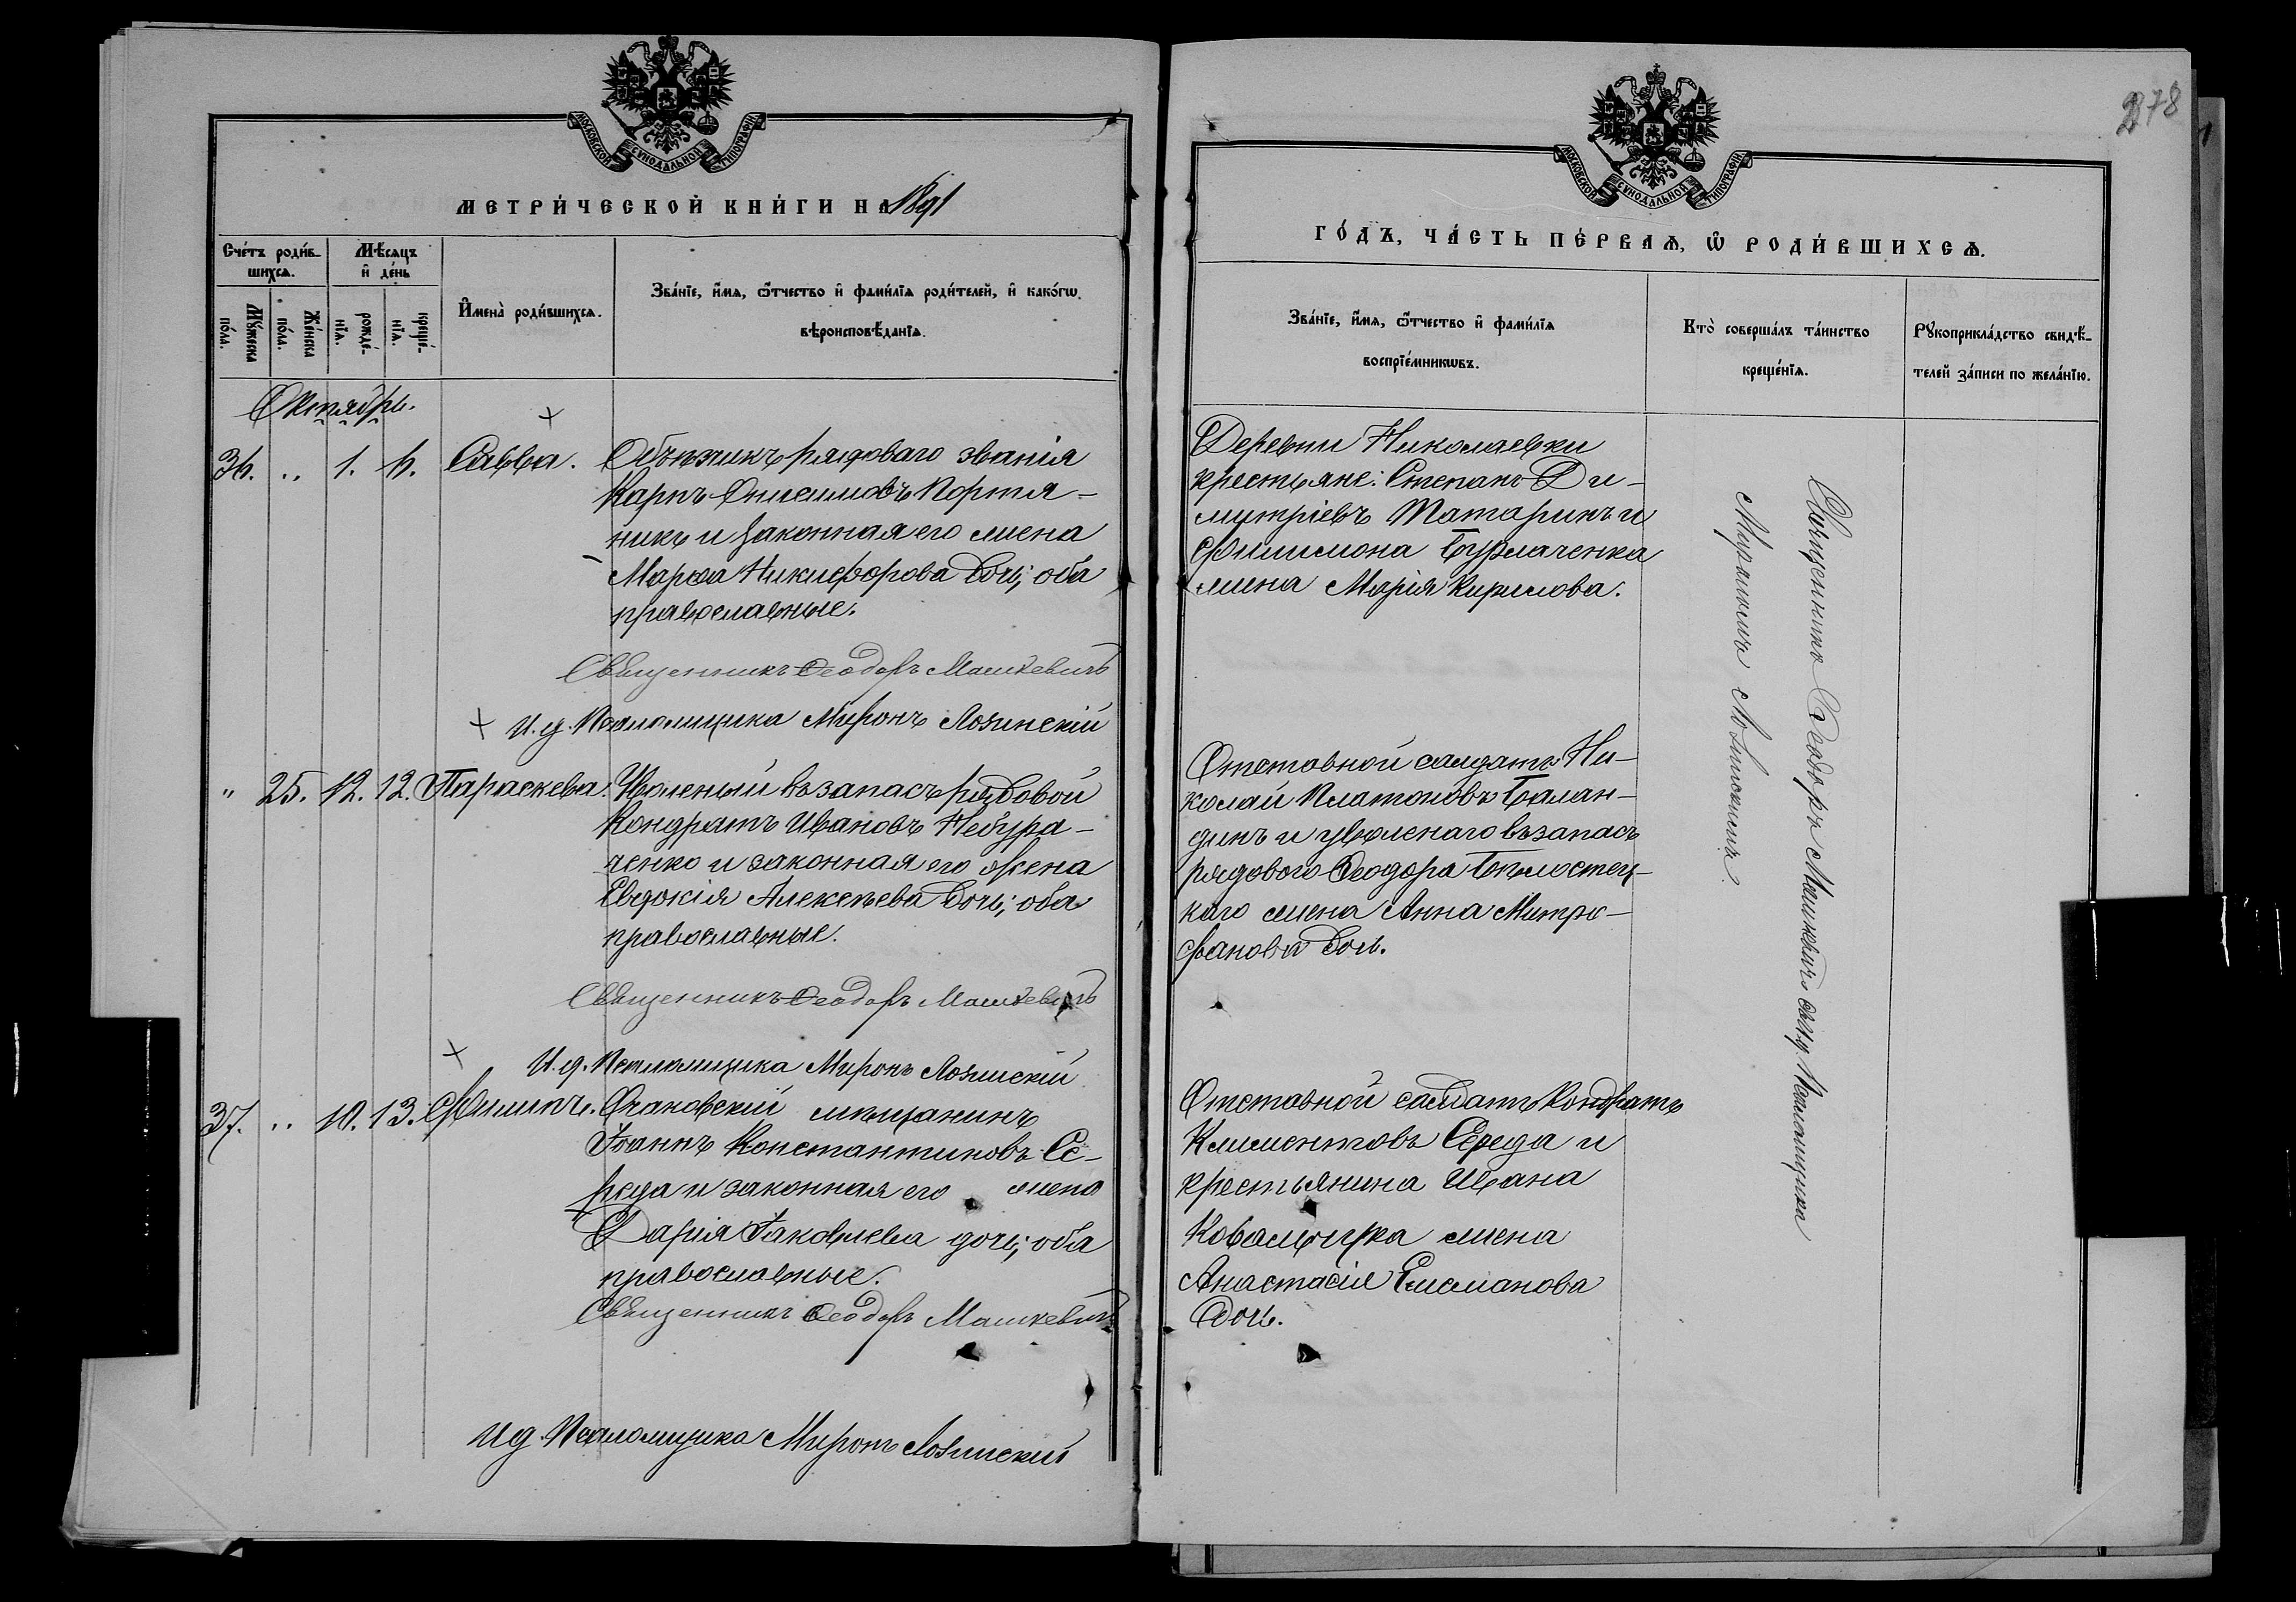 МОСКОВСКОЙ СѴНОДАЛЬНОЙ ТИПОГРАФІИ
МЕТРИ́ЧЕСКОЙ КНИ́ГИ НА 1891
Сче́тъ роди́в-
шихся.
Мѣ́сяцъ
и҆ де́нь
Мꙋ́жеска
по́ла.
Же́нска
по́ла.
рожде́-
нїя.
креще́-
нїя.
И҆мена̀ роди́вшихся.
Зва́нїе, и҆́мя, ѻ҆́тчество и҆ фами́лїя роди́телей, и҆ како́гѡ
вѣроисповѣ́данїя.
Октябрь.
36. „ 1. 6. Савва.
Объѣзчикъ рядоваго званія
Карпъ Онисимовъ Портя-
никъ и законная его жена
Марѳа Никифорова дочь; оба
православные.
Священникъ Ѳеодоръ Машкевичъ
И. д. Псаломщика Миронъ Лозинскій
„ 25. 12. 12. Параскева.
Уволеный въ запасъ рядовой
Кондратъ Ивановъ Небура-
ченко и законная его жена
Евдокія Алексѣева дочь; оба
православные.
Священникъ Ѳеодоръ Машкевичъ
И. д. Псаломщика Миронъ Лозинскій
37. „ 10. 13. Филиппъ.
Очаковскій мѣщанинъ
Іоаннъ Константиновъ Се-
реда и законная его жена
Дарія Іаковлева дочь; оба
православные.
Священникъ Ѳеодоръ Машкевичъ
И д. Псаломщика Миронъ Лозинский
278
МОСКОВСКОЙ СѴНОДАЛЬНОЙ ТИПОГРАФІИ
ГО́ДЪ, ЧА́СТЬ ПЕ́РВАЯ, Ѽ РОДИ́ВШИХСЯ.
Зва́нїе, и҆́мя, ѻ҆́тчество и҆ фами́лїя
воспрїе́мникѡвъ.
Кто̀ соверша́лъ та́инство
креще́нїя.
Рꙋкоприкла́дство свидѣ́-
телей за́писи по жела́нїю.
Деревни Николаевки
крестьяне: Степанъ Ди-
митріевъ Татаринъ и
Филимона Бурлаченка
жена Марія Кирилова.
Отставной салдатъ Ни-
колай Платоновъ Балан-
динъ и уволенаго въ запасъ
рядового Ѳеодора
каго жена Анна Митро-
фанова дочь.
Отставной салдатъ Кондратъ
Климентовъ Середа и
крестьянина Ивана
жена
Анастасія Емелианова
дочь.
Священникъ Ѳеодоръ Машкевичъ съ и. д. Псаломщика
Мирономъ Лозинскимъ.